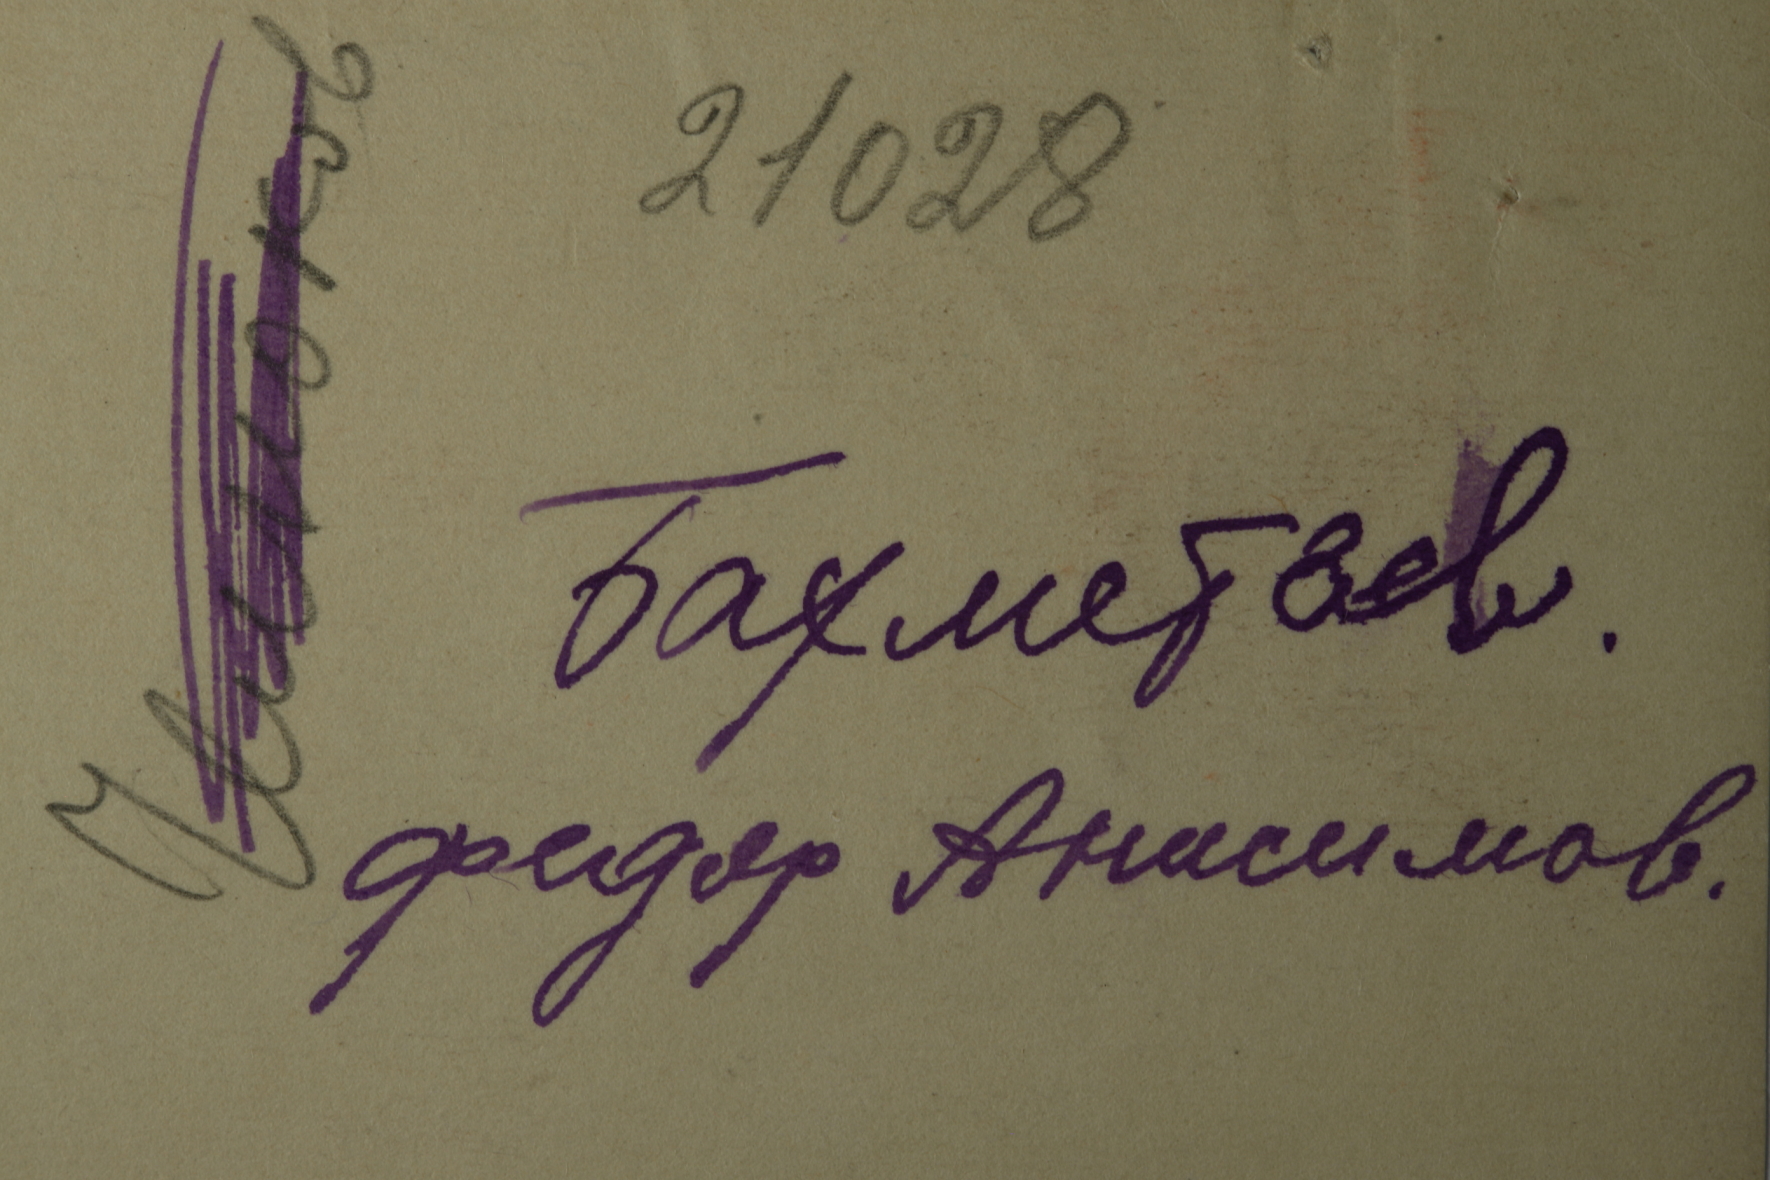 21028
Бахметьев.
Федор Анисимов.